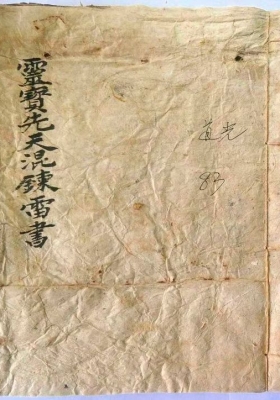 靈寶先天混鍊雷書
道光